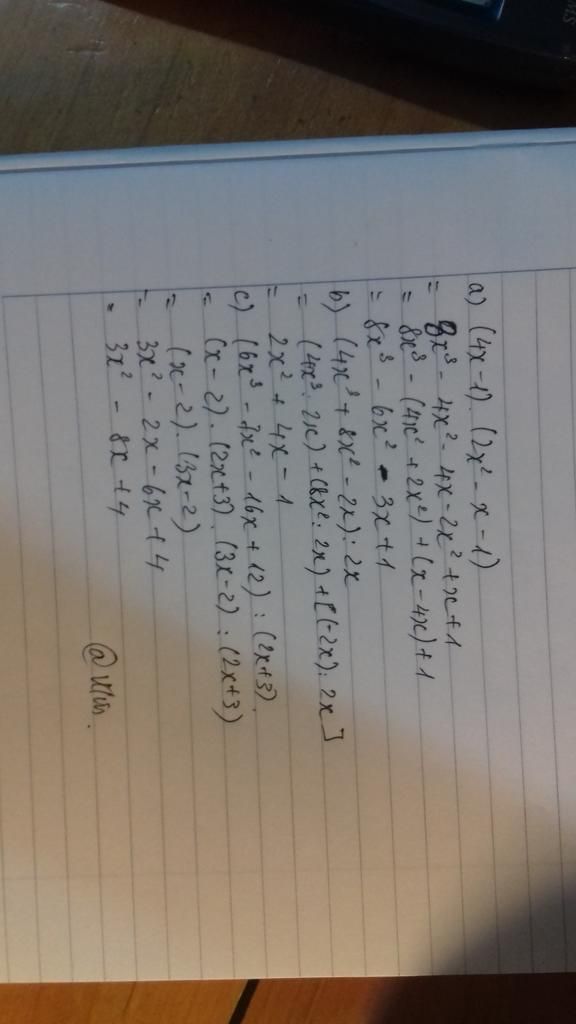 a) (4x-1).(2x²-x-1)
= 8x³ - 4x² - 4x - 2x² + x + 1
= 8x³ - (4x² + 2x²) + (x - 4x) + 1
= 8x³ - 6x² - 3x + 1
b) (4x³ + 8x² - 2x) : 2x
= (4x³ : 2x) + (8x² : 2x) + [(-2x) : 2x]
= 2x² + 4x - 1
c) (6x³ - 7x² - 16x + 12) : (2x+3).
= (x - 2).(2x+3).(3x-2) : (2x+3)
= (x-2).(3x-2)
= 3x² - 2x - 6x + 4
= 3x² - 8x + 4